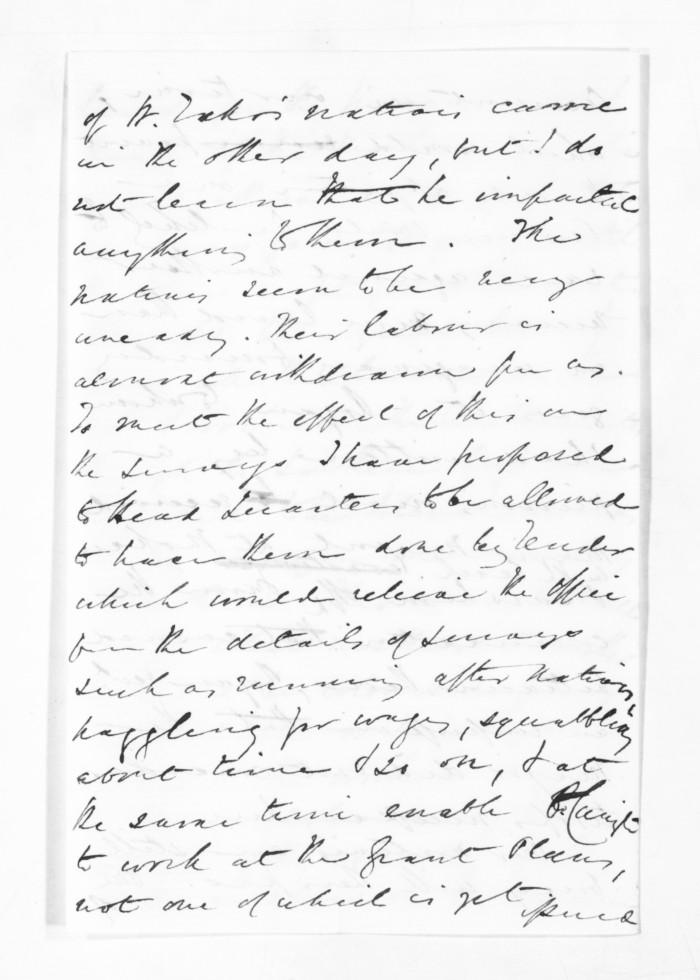 of W. natives came
in the other day, but I do
not learn that he imparted
anything to them. The
natives seem to be very
uneasy. Their labour is
almost withdrawn from us.
To meet the effect of this on
the surveys I have proposed
to Head Quarters to be allowed
to have them done by tender
which would relieve the office
from the details of surveys
such as running after natives,
haggling for wages, squabbling
about time & so on, & at
the same time enable
to work at the Grant Plans,
not one of which is yet issued